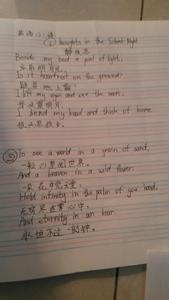 ① Thoughts in the Silent Night
静夜思
Beside my bed a pool of light,
床前明月光,
Is it hoarfrost on the ground?
疑是地上霜?
I lift my eyes and see the moon,
举头望明月,
I bend my head and think of home.
低头思故乡。
② To see a world in a grain of sand,
And a heaven in a wild flower.
Hold infinity in the palm of your hand,
And eternity in an hour.